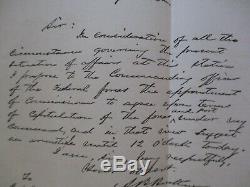 Sir:
In consideration of all the
circumstances governing the present
situation of affairs at this station
I propose to the Commanding officer
of the Federal forces the appointment
of Commissioners to agree upon terms
of capitulation of the forces under my
command, and in that view suggest
an armistice until 12 O'clock today.
I am respectfully
To
S B Buckner